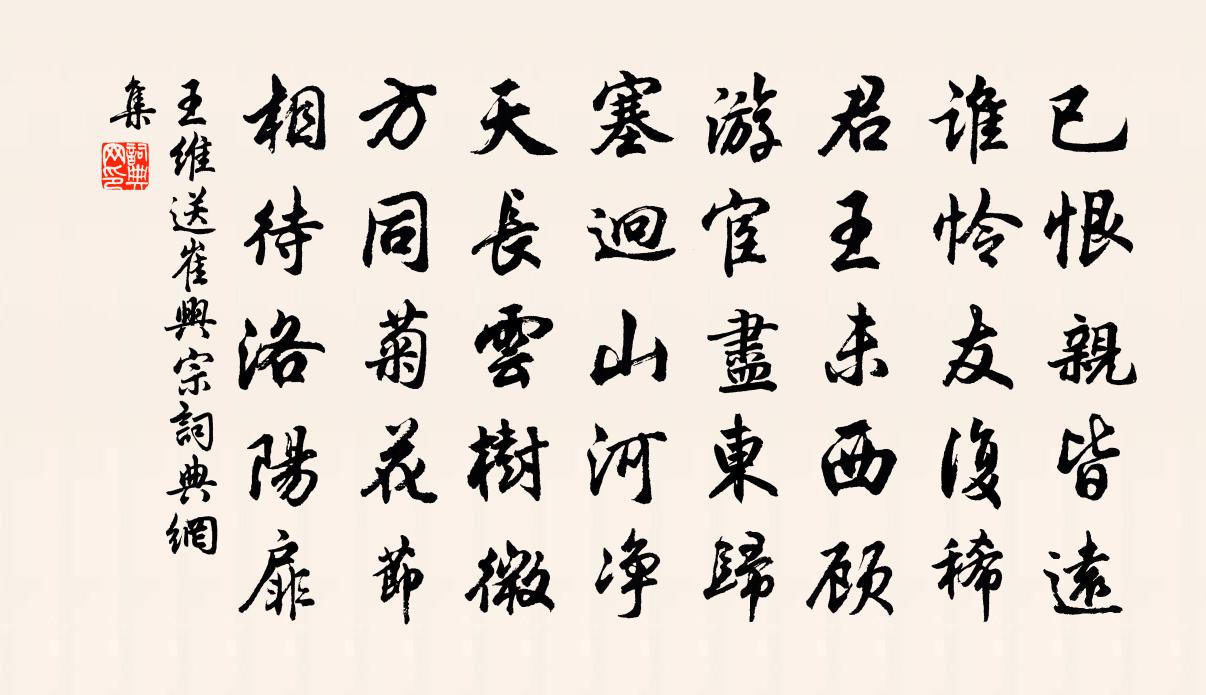 已恨親皆遠
誰怜友復稀
君王未西顾
游宦盡東歸
塞迥山河净
天長雲樹微
方同菊花節
相待洛陽扉
王維送崔興宗詞典網
集
詞典網印